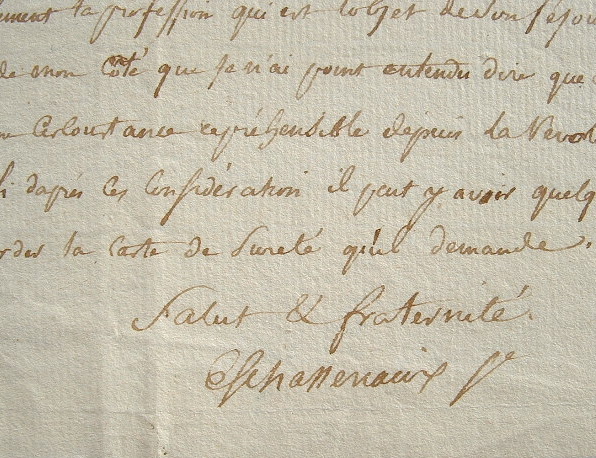 la profession qui est lobjet de son séjou
de mon Côté que je n'ai point entendu dire que
Cirloustance repréhensible depuis la Revol
dapres ces Considération il peut y avoir quelq
la Carte de Sureté qu'il demande.
Salut & fraternité.
Eschasseriaux